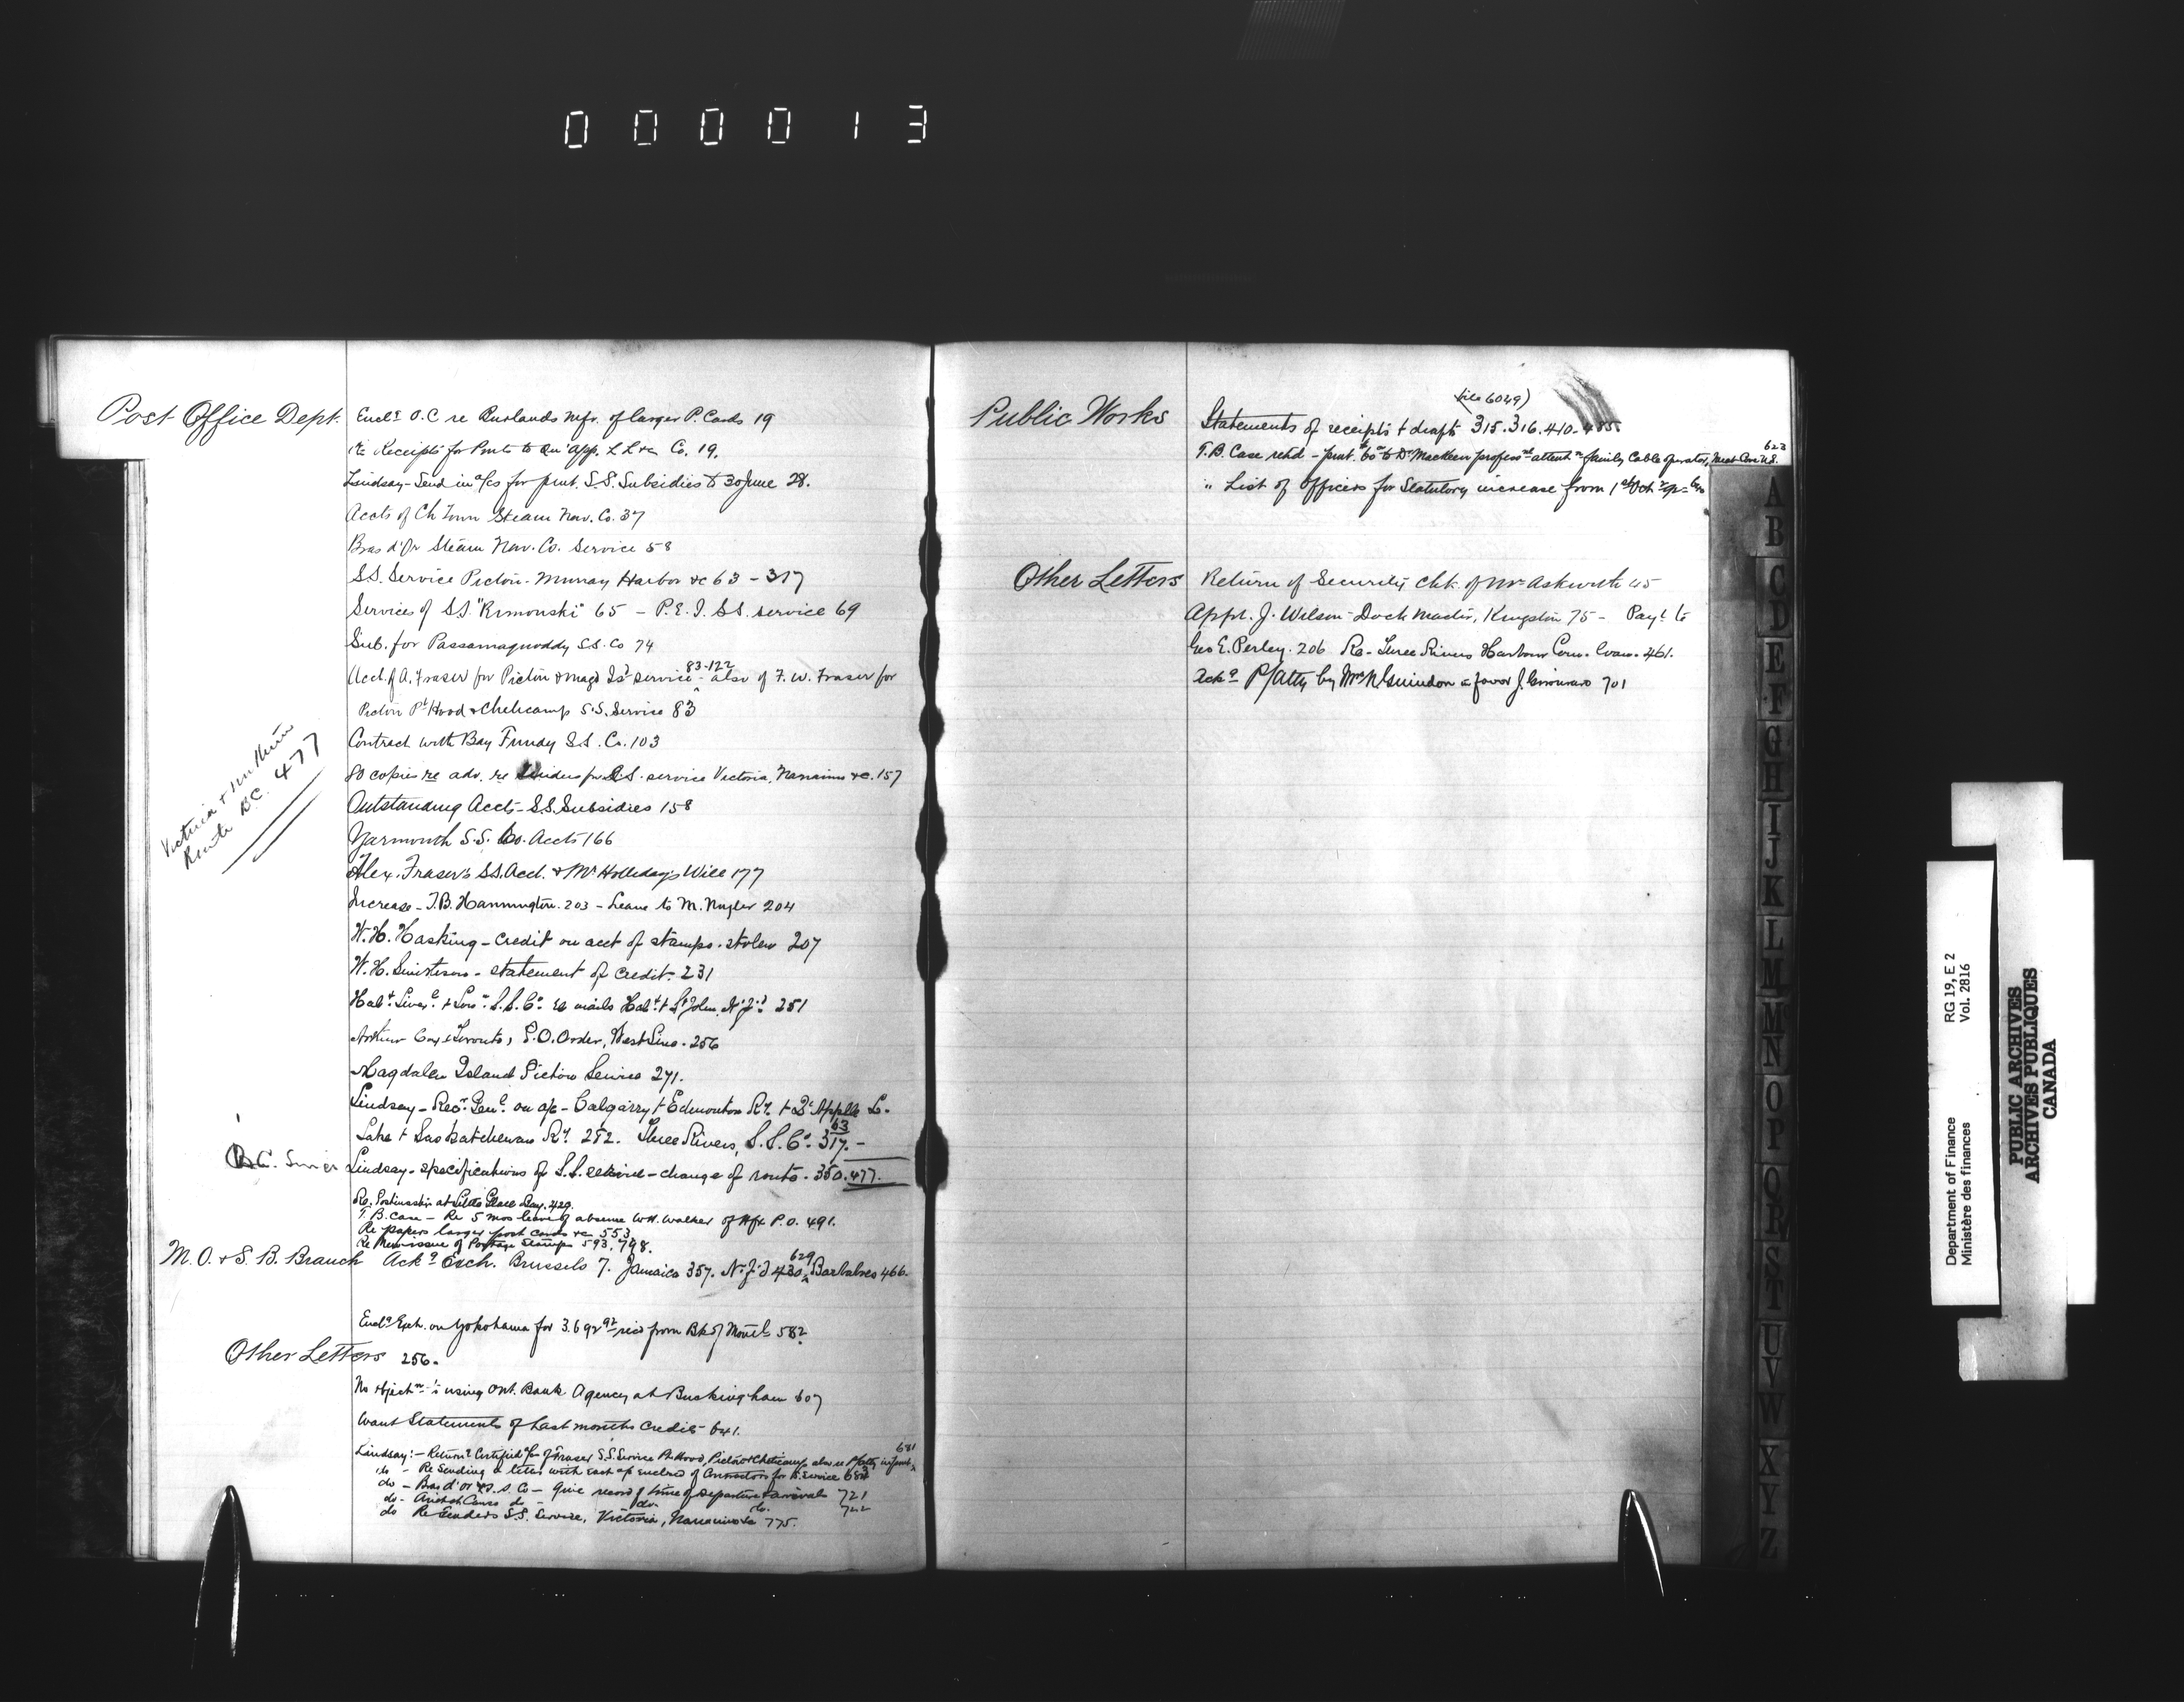 000013
Post Office Dept.
Encl^g O.C re Burlands Mfr. of larger P. Cards 19
re Receipts for Pmts to Qu'app. L L &c Co. 19.
Lindsay - Send in a/cs for pmt. S.S. Subsidies to 30 June 28.
Accts of Ch Town Steam Nav. Co. 37
Bras d'Or Steam Nav. Co. Service 58
S.S. Service Pictou - Murray Harbor &c 63 - 317
Services of S.S. "Rimouski" 65 - P.E.I. S.S. service 69
Sub. for Passamaquoddy S.S. Co 74
83-122
Acct. of A. Fraser for Pictou & Magd Isd service - also of F. W. Fraser for
Pictou Pt Hood & Cheticamp S.S. Service 83
Contract with Bay Fundy S.S. Co. 103
80 copies re adv. re Tenders for S.S. service Victoria, Nanaimo &c. 157
Victoria &
Route B.C. 477
Outstanding Accts - S.S. Subsidies 158
Yarmouth S.S. Co. Accts 166
Alex. Fraser's S.S. Acct. & Mr Holliday's Will 177
Increase - T.B. Hannington. 203 - Leave to M. 204
W. H. Hasking - Credit on acct of stamps stolen 207
W. H. - statement of credit. 231
Hal^x Liver^l & Lon^n S.S. Co. re mails Hal^x & St John, N.F.d 251
Arthur Cox Toronto, P.O. Order, 256
Magdalen Island Pictou Service 271.
Lindsay - Rec^r Gen^l on a/c - Calgary & Edmonton Ry. & Qu'Appelle L.
Lake & Saskatchewan Ry. 282. Three Rivers, S.S. Co. 317. -
63
B.C. Service
Lindsay - specifications of S.S. service - change of route. 350. 477.
Re. Postmaster at Little Glace Bay. 429.
T. B. Case - Re 5 mos leave of absence W.H. Walker of Hfx P.O. 491.
Re papers larger post cards &c 553
Re of Postage Stamps 593. 748.
M. O. & S. B. Branch
629
Ack^g Exch. Brussels 7. Jamaica 357. N.F.d 430, Barbadoes 466.
Encl^g Exch. on Yokohama for 3.692^92 rec'd from Bk of Mont^l 582
Other Letters 256.
No object^n to using Ont. Bank Agency at Buckingham 607
Want Statements of Last months Credits 641.
681
Lindsay: - Return^g Certified a/cs of Fraser S.S. Service Pt Hood, Pictou & Cheticamp also re P/atty
do - Re Sending a letter with each a/c enclosed of Contractors for S. Service 684
do - Bras d'Or S. S. Co - Give record of time of departure & arrival 721
do - do - do. do. 722
do Re Tenders S.S. Service, Victoria, Nanaimo &c 775.
Public Works
(file 6049)
Statements of receipts & drafts 315. 316. 410. 485.
623
T.B. Case retd - pmt. to Dr Mackeen profess^nl attent^n family Cable operator, Meat Cove N.S.
" List of Officers for Statutory increase from 1st Oct
Other Letters
Return of Security Chk. of Mr Askwith 45
Appt. J. Wilson - Dock Master, Kingston 75 - Pay^t to
Geo E. Perley. 206 Re - Three Rivers Harbour Com. 461.
Ack^g P/atty by Mrs N. Guindon in favor J. 701
A
B
C
D
E
F
G
H
I
J
K
L
M
Mc
N
O
P
Q
R
S
T
U
V
W
X
Y
Z
Department of Finance RG 19, E 2
Ministère des finances Vol. 2816
PUBLIC ARCHIVES
ARCHIVES PUBLIQUES
CANADA